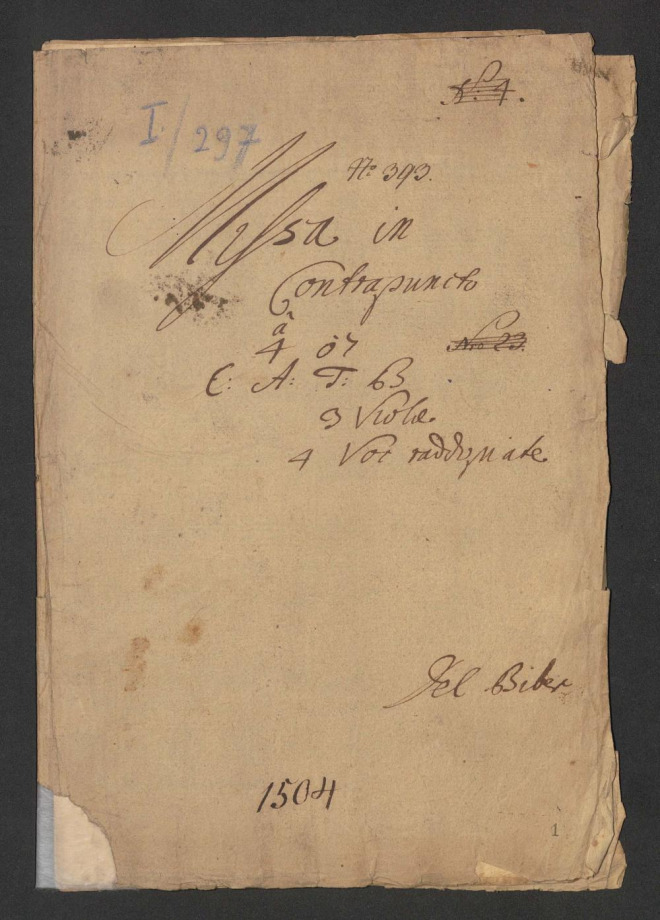 No: 4.
I/297
No: 393.
Myssa in
Contrapuncto
â
4 ò 7
C: A: T: B
3 Violæ
4 Voc raddopiate
Nro 23.
Del Biber
1504
1